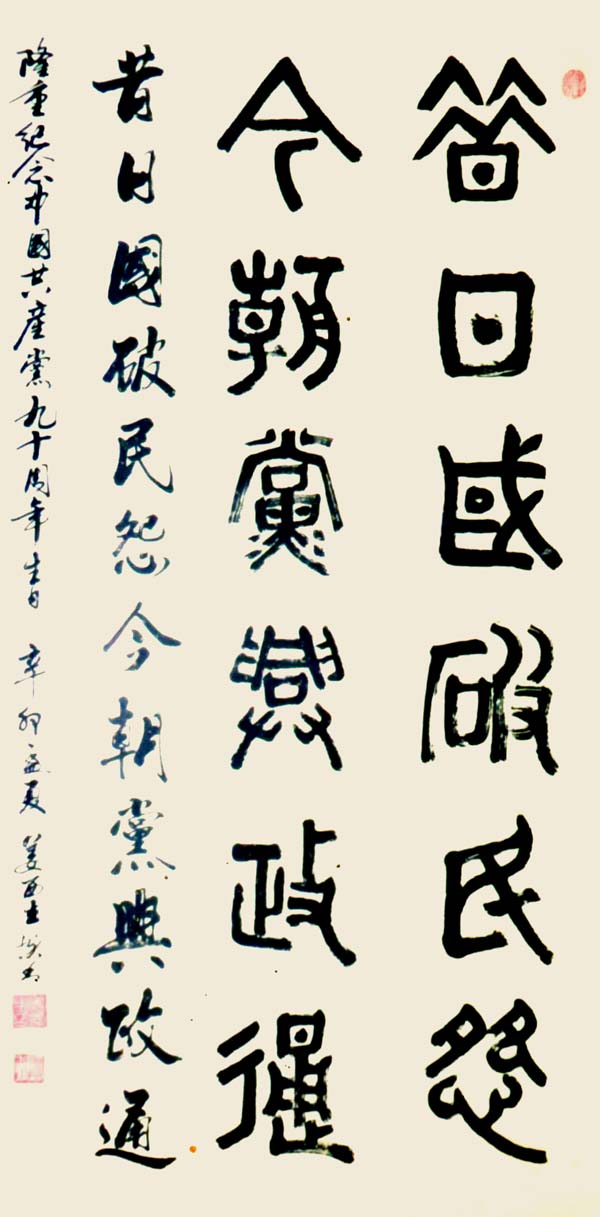 昔日國破民怨
今朝黨興政通
昔日國破民怨今朝黨興政通
隆重纪念中國共産黨九十周年生日 辛卯盛夏 姜西